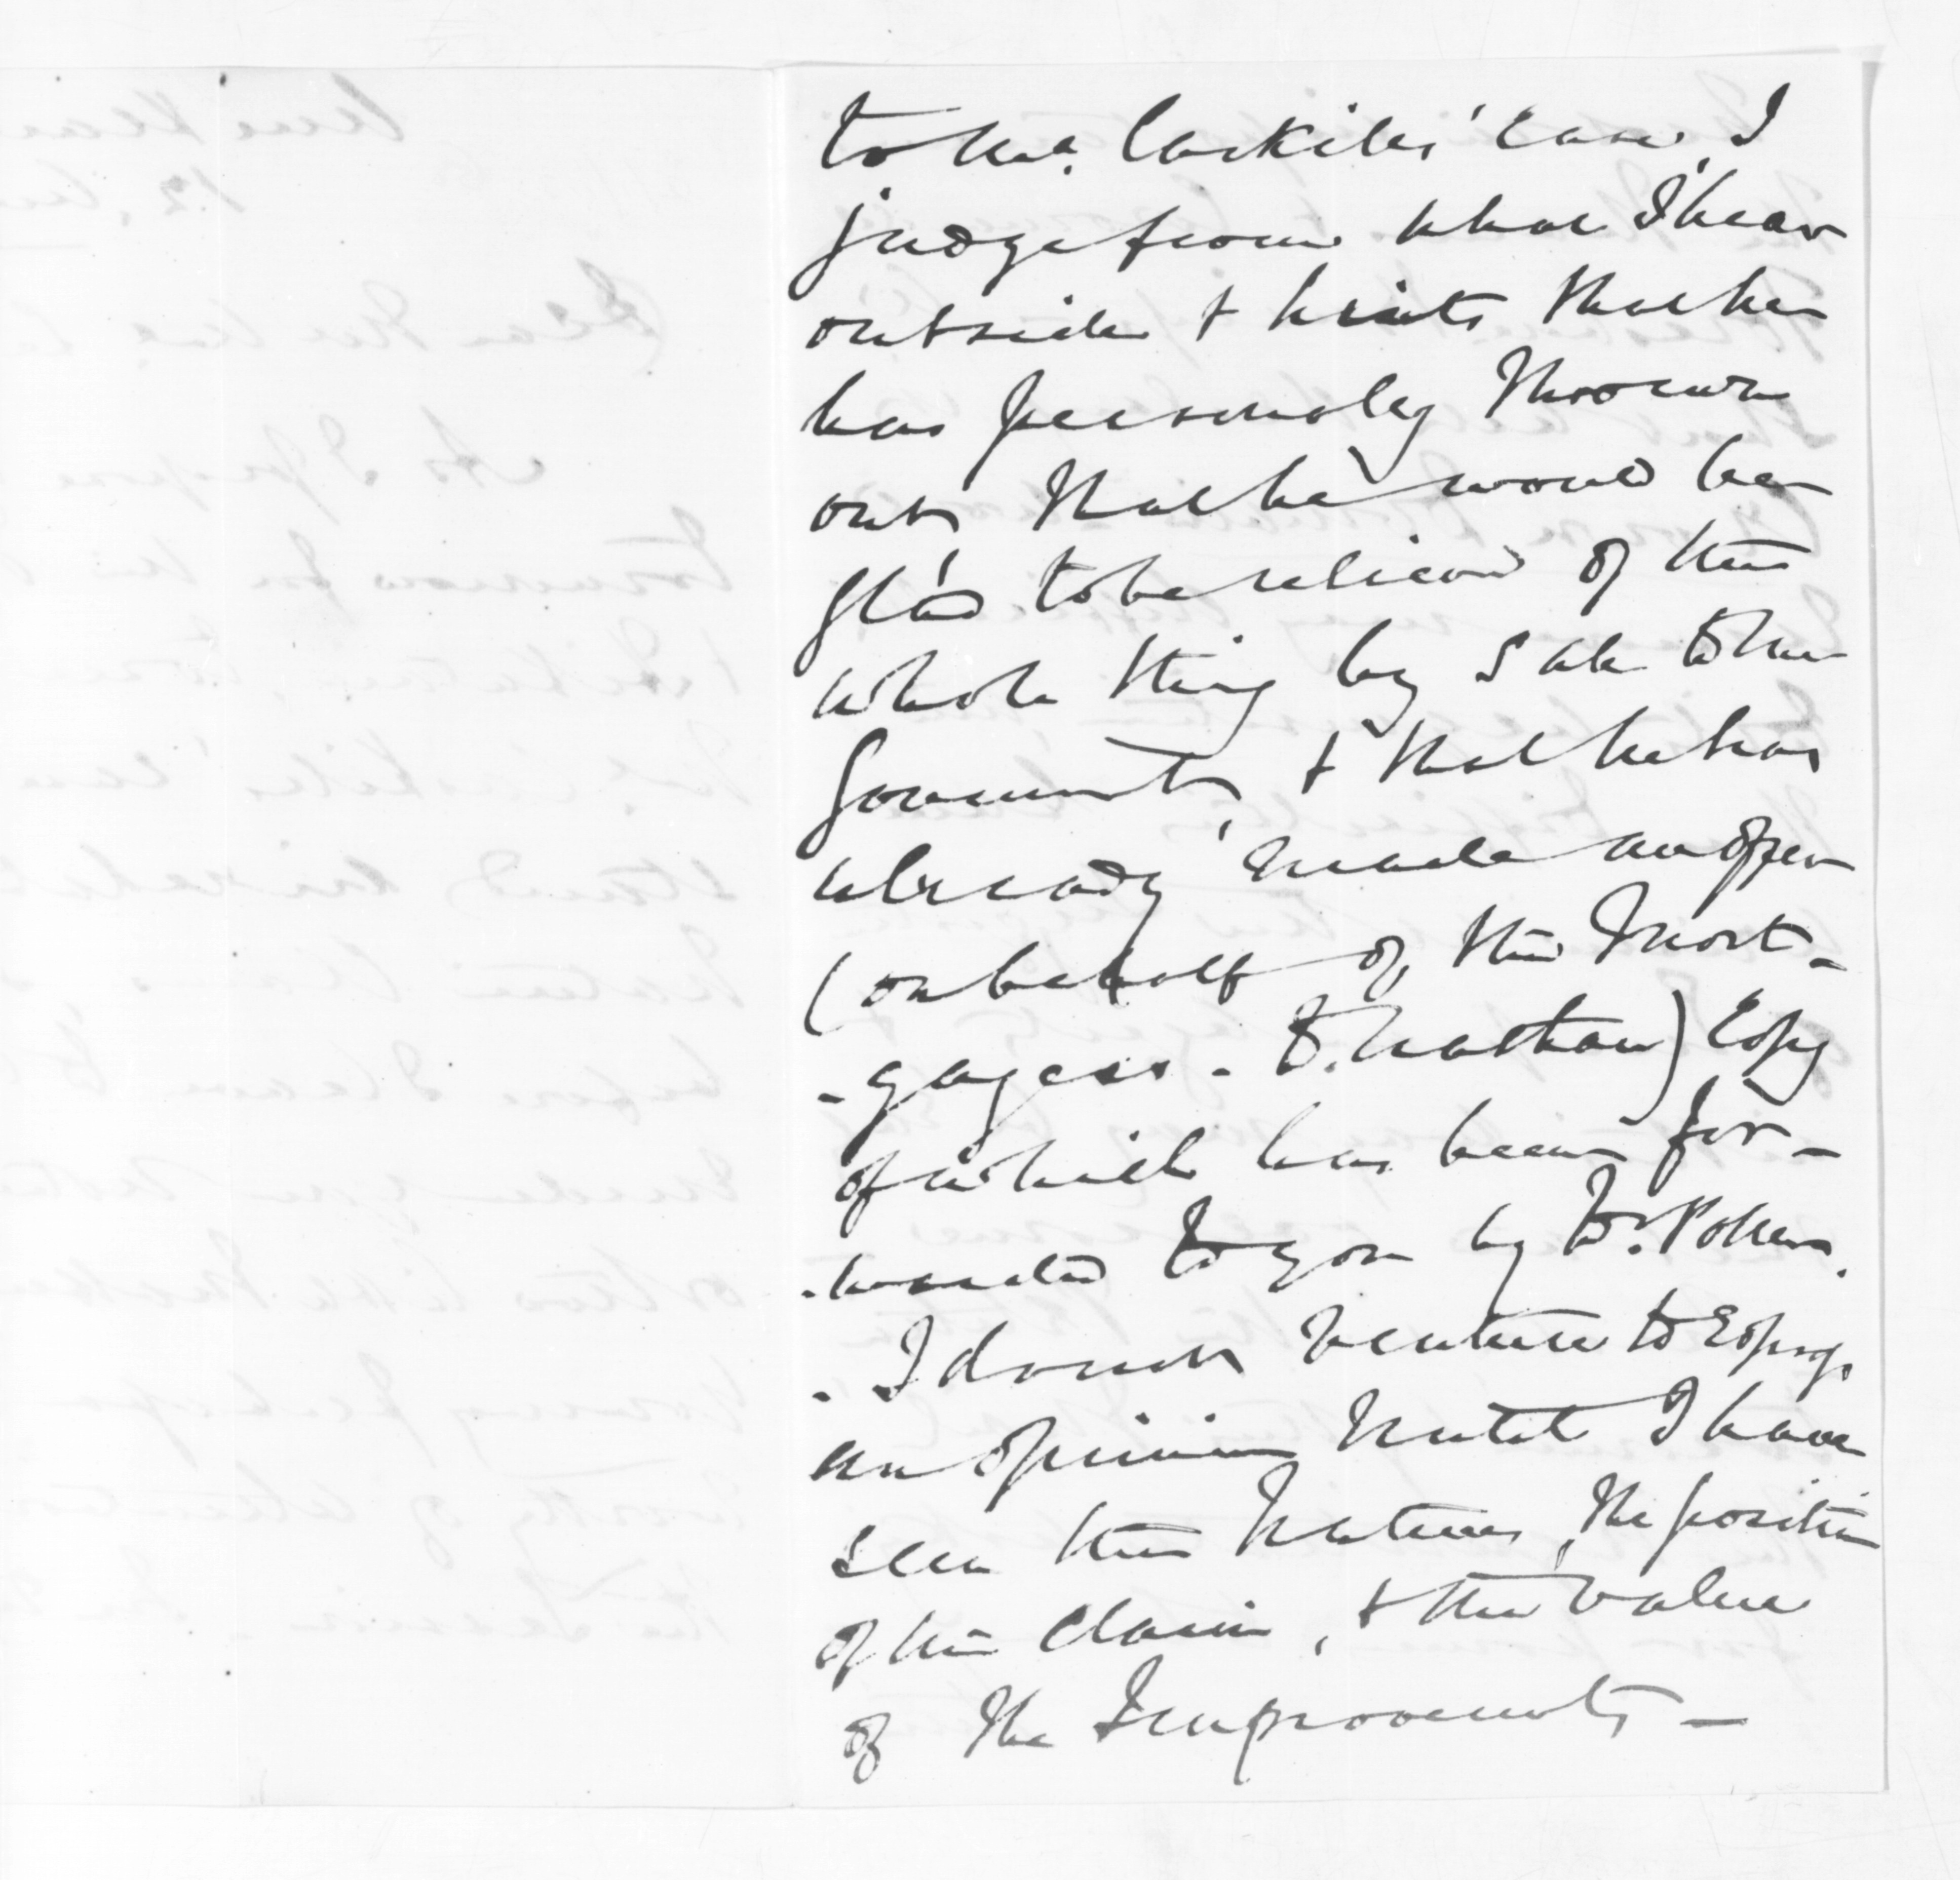 to Mr. Caskiles' case, I
judge from what I hear
outside & hints that he
has personally thrown
out, that he would be
glad to be relieved of the
whole thing by sale to the
Government, & that he has
already made an offer
(on behalf of the Mort-
-gagees - D. Nathan) Copy
of which has been for-
-warded to you by Dr. Pollen.
- I do not venture to Expr.
an opinion until I have
seen the Natives, the position
of the Claim, & the value
of the Improvements -